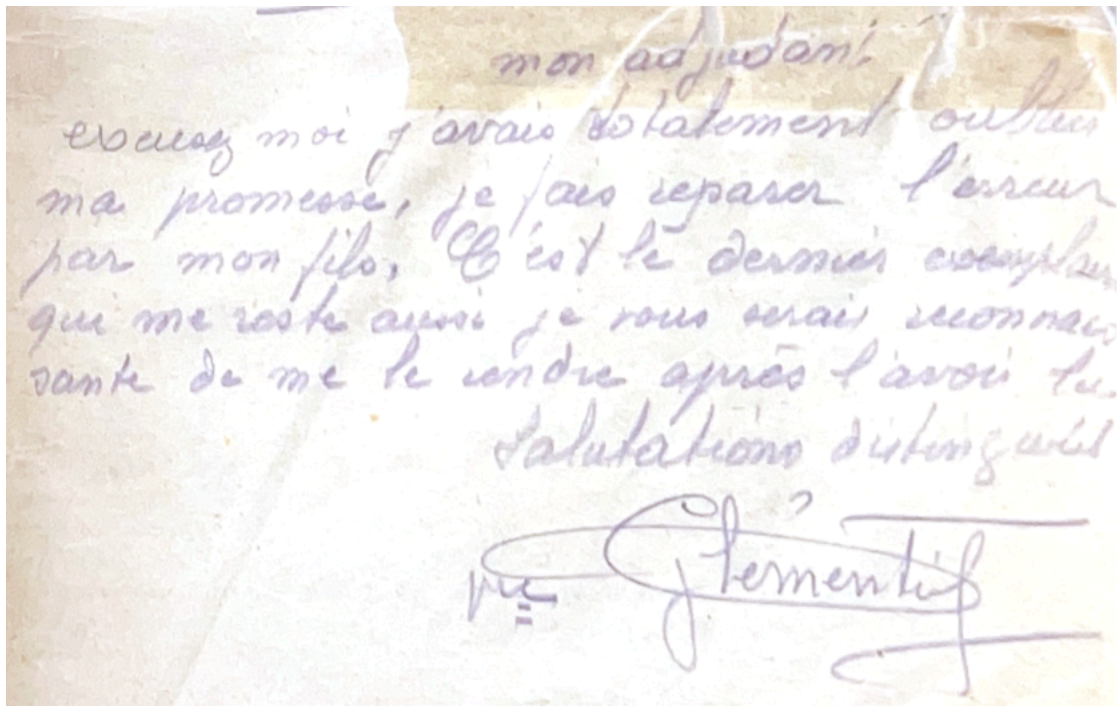 mon adjudant
excusez moi j'avais totalement oublier
ma promesse, je fais reparer l'erreur
par mon fils, C'est le dernier exemplaire
qui me reste aussi je vous serais reconnais
sante de me le rendre après l'avoir lu
Salutations distinguées